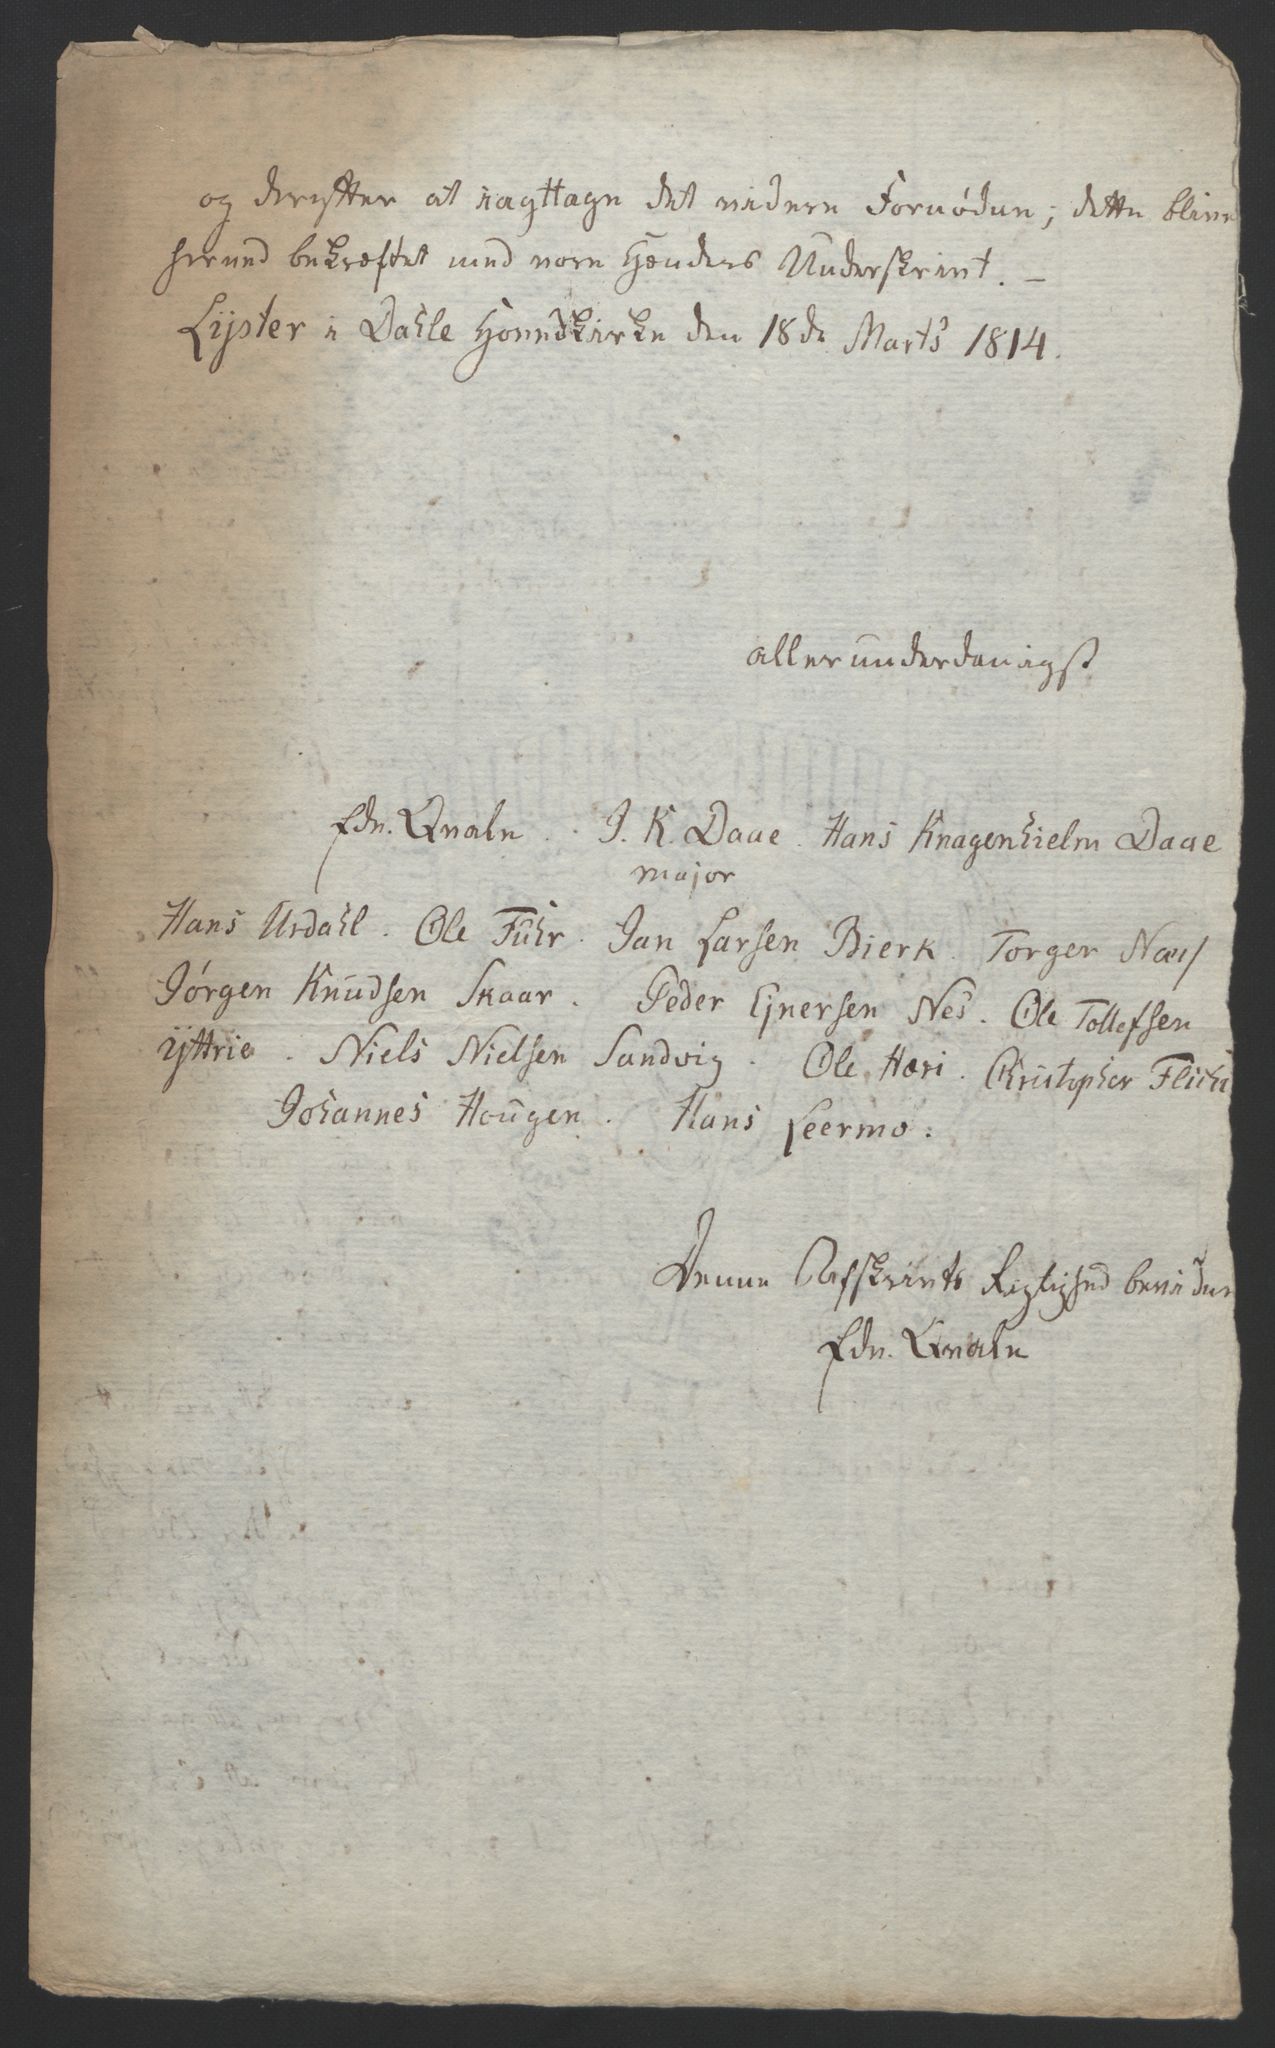 og derefter at iagttage det videre Fornødne; dette blive
herved bekræftet med vore Hænders Underskrivt. –
Lyster i Dahle Hovedkirke den 18de Marts 1814.
allerunderdanigst
Edv. Qvale. J. K. Daae. Hans Knagenhielm Daae
major
Hans Urdahl. Ole Fuhr. Jan Larsen Bierk. Torger Næss
Jørgen Knudsen Skaar. Peder Ejnersen Nes. Ole Tollefsen
Yttrie. Niels Nielsen Sandvig. Ole Hæri. Christopher
Johannes Hougen. Hans Leermo.
Denne Afskrivts Rigtighed bevidner
Edv. Qvale